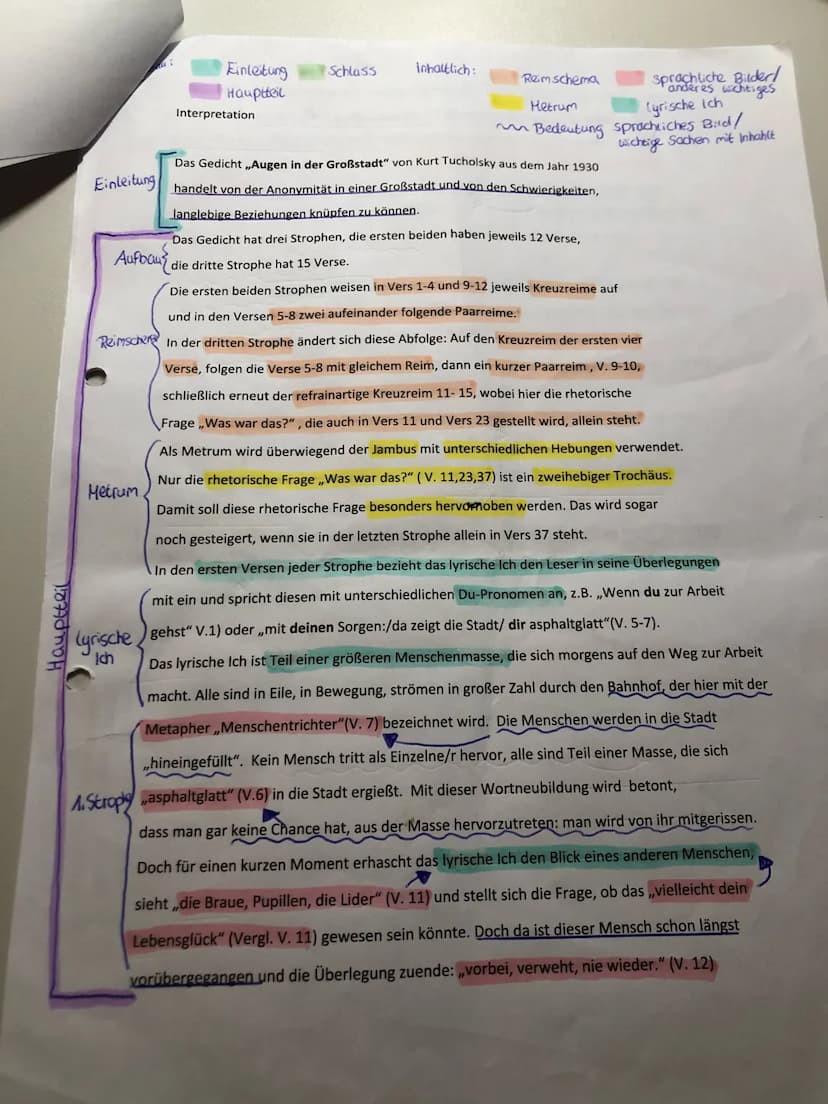 Einleitung Schlass Inhaltlich: Reimschema sprachliche Bilder/
anderes wichtiges
Hauptteil Metrum lyrische Ich
Bedeutung sprachliches Bild/
wichtige Sachen mit Inhahlt
Interpretation
Einleitung
Das Gedicht „Augen in der Großstadt“ von Kurt Tucholsky aus dem Jahr 1930
handelt von der Anonymität in einer Großstadt und von den Schwierigkeiten,
langlebige Beziehungen knüpfen zu können.
Aufbau
Das Gedicht hat drei Strophen, die ersten beiden haben jeweils 12 Verse,
die dritte Strophe hat 15 Verse.
Die ersten beiden Strophen weisen in Vers 1-4 und 9-12 jeweils Kreuzreime auf
und in den Versen 5-8 zwei aufeinander folgende Paarreime.
Reimschema
In der dritten Strophe ändert sich diese Abfolge: Auf den Kreuzreim der ersten vier
Verse, folgen die Verse 5-8 mit gleichem Reim, dann ein kurzer Paarreim , V. 9-10,
schließlich erneut der refrainartige Kreuzreim 11- 15, wobei hier die rhetorische
Frage „Was war das?“ , die auch in Vers 11 und Vers 23 gestellt wird, allein steht.
Als Metrum wird überwiegend der Jambus mit unterschiedlichen Hebungen verwendet.
Metrum
Nur die rhetorische Frage „Was war das?“ ( V. 11,23,37) ist ein zweihebiger Trochäus.
Damit soll diese rhetorische Frage besonders hervorhoben werden. Das wird sogar
noch gesteigert, wenn sie in der letzten Strophe allein in Vers 37 steht.
Hauptteil
In den ersten Versen jeder Strophe bezieht das lyrische Ich den Leser in seine Überlegungen
mit ein und spricht diesen mit unterschiedlichen Du-Pronomen an, z.B. „Wenn du zur Arbeit
lyrische Ich
gehst“ V.1) oder „mit deinen Sorgen:/da zeigt die Stadt/ dir asphaltglatt“(V. 5-7).
Das lyrische Ich ist Teil einer größeren Menschenmasse, die sich morgens auf den Weg zur Arbeit
macht. Alle sind in Eile, in Bewegung, strömen in großer Zahl durch den Bahnhof, der hier mit der
Metapher „Menschentrichter“(V. 7) bezeichnet wird. Die Menschen werden in die Stadt
„hineingefüllt“. Kein Mensch tritt als Einzelne/r hervor, alle sind Teil einer Masse, die sich
1. Strophe
„asphaltglatt“ (V.6) in die Stadt ergießt. Mit dieser Wortneubildung wird betont,
dass man gar keine Chance hat, aus der Masse hervorzutreten: man wird von ihr mitgerissen.
Doch für einen kurzen Moment erhascht das lyrische Ich den Blick eines anderen Menschen,
sieht „die Braue, Pupillen, die Lider“ (V. 11) und stellt sich die Frage, ob das „vielleicht dein
Lebensglück“ (Vergl. V. 11) gewesen sein könnte. Doch da ist dieser Mensch schon längst
vorübergegangen und die Überlegung zuende: „vorbei, verweht, nie wieder.“ (V. 12)